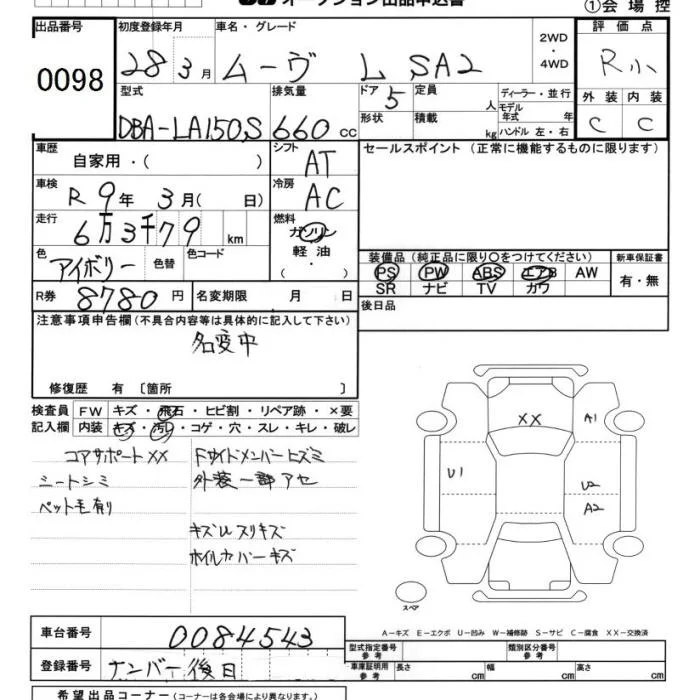 オークション出品申込書
①会場控
出品番号
0098
初度登録年月
28 3月
車名・グレード
ムーヴ L SA2
2WD
・
4WD
評価点
R小
型式
DBA-LA150S
排気量
660 cc
ドア
5
定員
人
ディーラー・並行
モデル
年式 年
形状
積載
kg
ハンドル 左・右
外装 内装
C C
車歴
自家用・( )
シフト
AT
セールスポイント(正常に機能するものに限ります)
車検
R 9年 3月( 日)
冷房
AC
走行
6万3千79 km
燃料
ガソリン
軽油
・( )
色
アイボリー
色替
色コード
装備品(純正品に限り○をつけてください)
PS PW ABS エアB AW
SR ナビ TV カワ
新車保証書
有・無
R券 8780円
名変期限 月 日
後日品
注意事項申告欄(不具合内容等は具体的に記入して下さい)
名変中
修復歴 有〔箇所 〕
検査員
記入欄
FW キズ・飛石・ヒビ割・リペア跡・×要
内装 キズ・汚レ・コゲ・穴・スレ・キレ・破レ
コアサポートXX
ニートシミ
ペット毛有り
Fサイドメンバーヒズミ
外装一部アセ
キズUスリキズ
ホイルカバーキズ
XX
A1
U1
U2
A2
スペア
A―キズ E―エクボ U―凹み W―補修跡 S―サビ C―腐食 XX―交換済
車台番号
0084543
登録番号
ナンバー後日
型式指定番号
参考
類別区分番号
参考
車庫証明用
参考
長さ cm
幅 cm
高さ cm
希望出品コーナー(コーナーは各会場により異なります。)